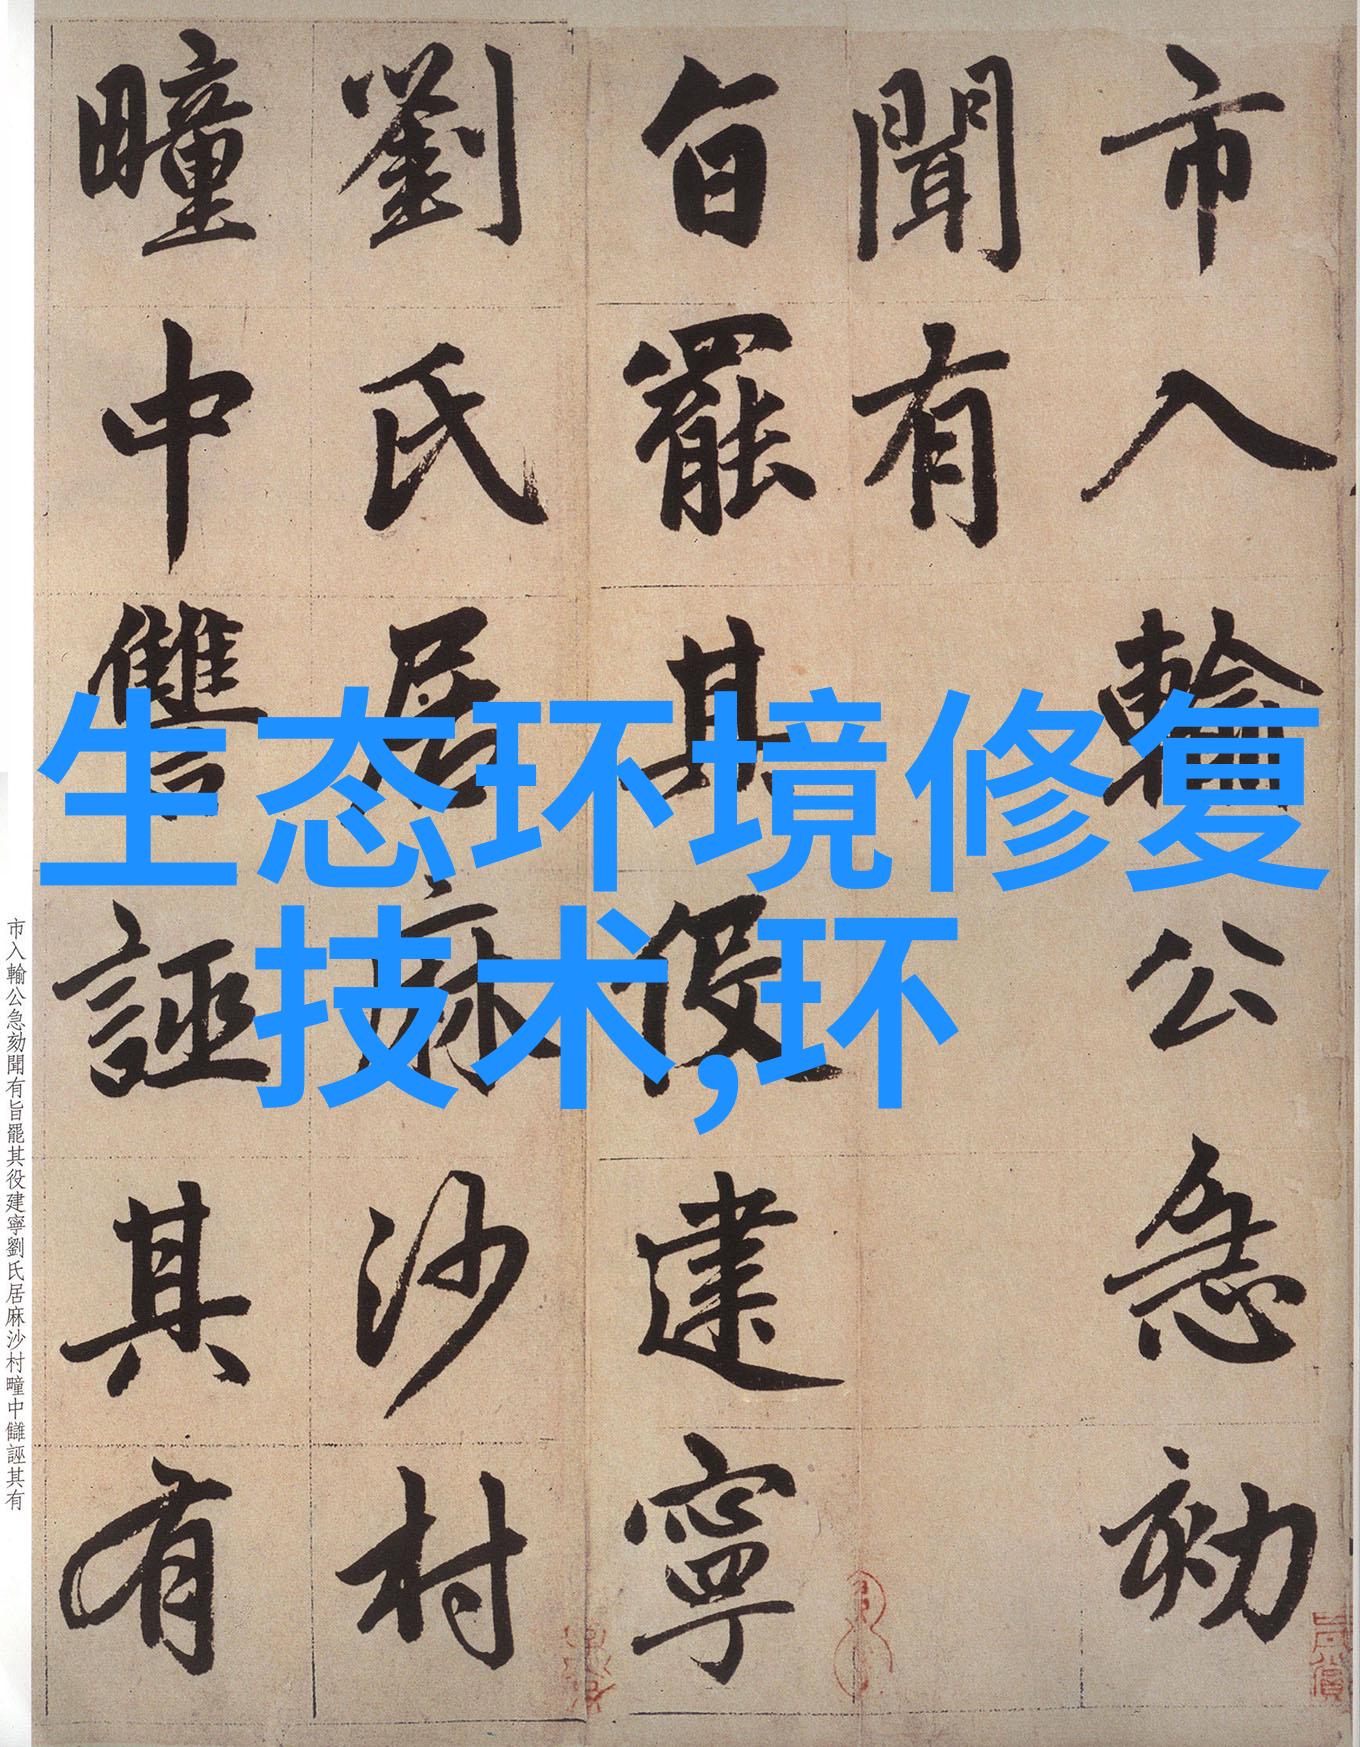 市入輸公急劾
聞有
旨罷其役建寧
劉氏居麻沙村
疃中讐誣其有
生态环境修复
技术,环
市入輸公急劾聞有旨罷其役建寧劉氏居麻沙村疃中讎誣其有